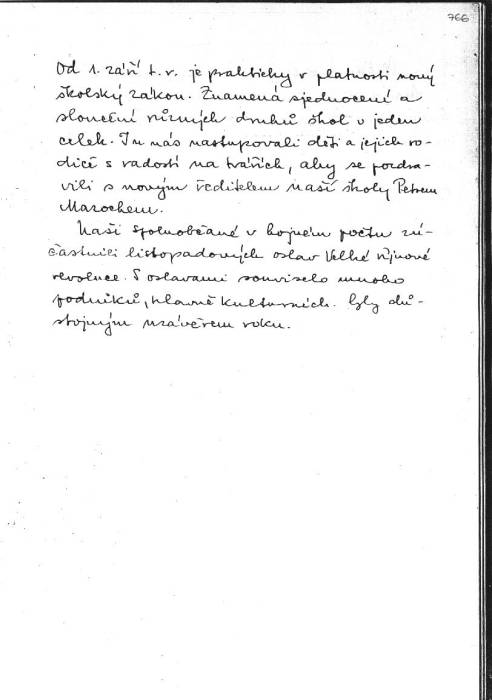 766
Od 1. září t. r. je prakticky v platnosti nový
školský zákon. Znamená sjednocení a
sloučení různých druhů škol v jeden
celek. I u nás nastupovali děti a jejich ro-
diče s radostí na tvářích, aby se pozdra-
vili s novým ředitelem naší školy Petrem
Marochem.
Naši spoluobčané v hojném počtu zú-
častnili listopadových oslav Velké říjnové
revoluce. S oslavami souviselo mnoho
podniků, hlavně kulturních. Byly dů-
stojným uzávěrem roku.